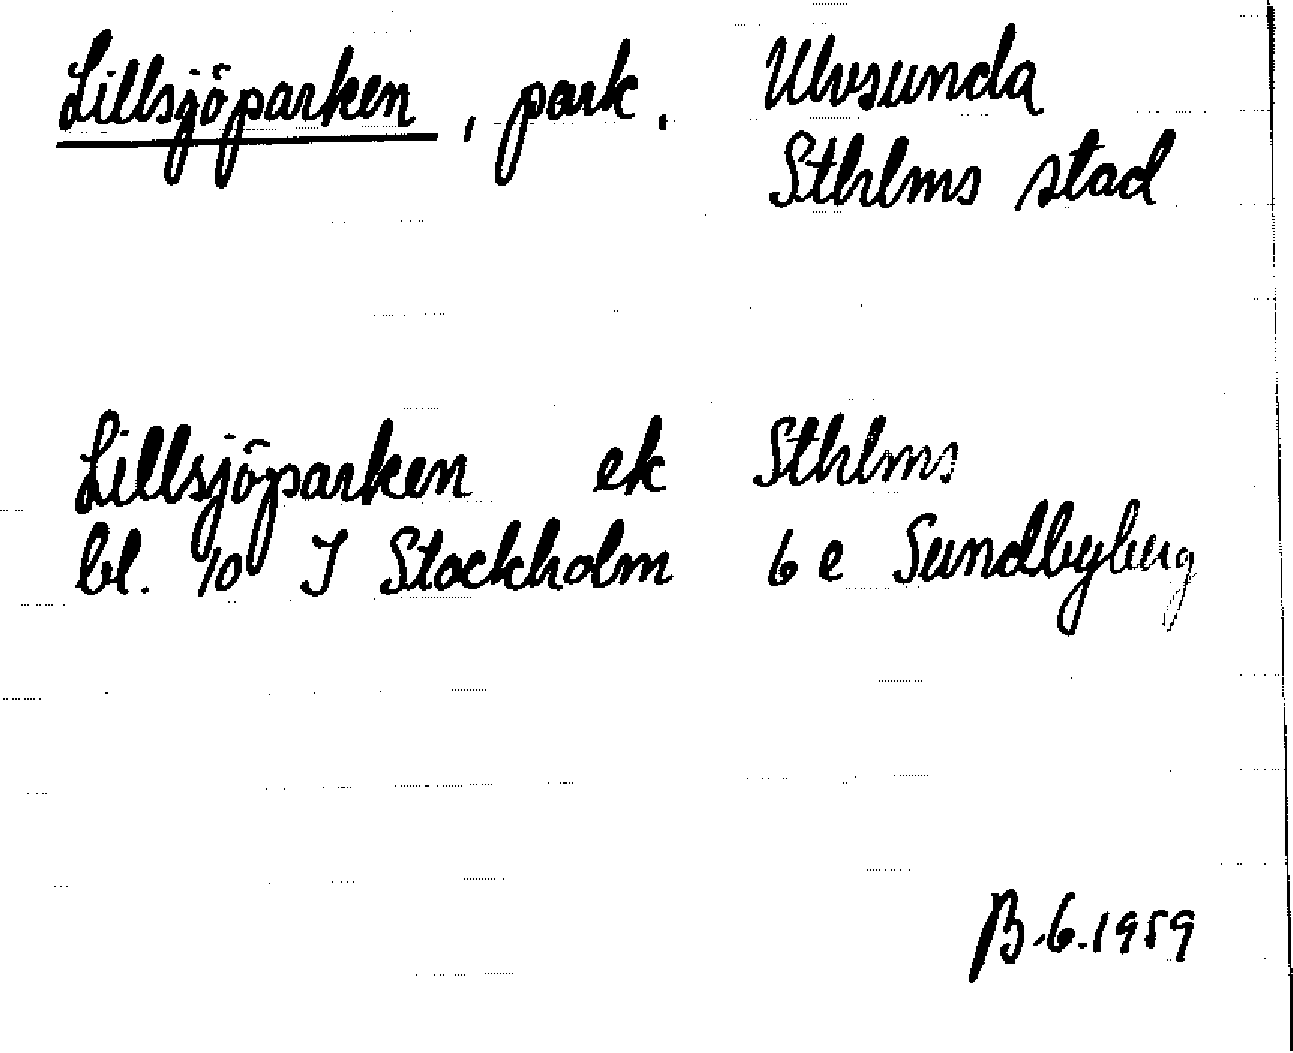 Lillsjöparken, park. Ulvsunda
Sthlms stad
Lillsjöparken ek Sthlms
bl. 10 I Stockholm 6 e Sundbyberg
B.6.1959